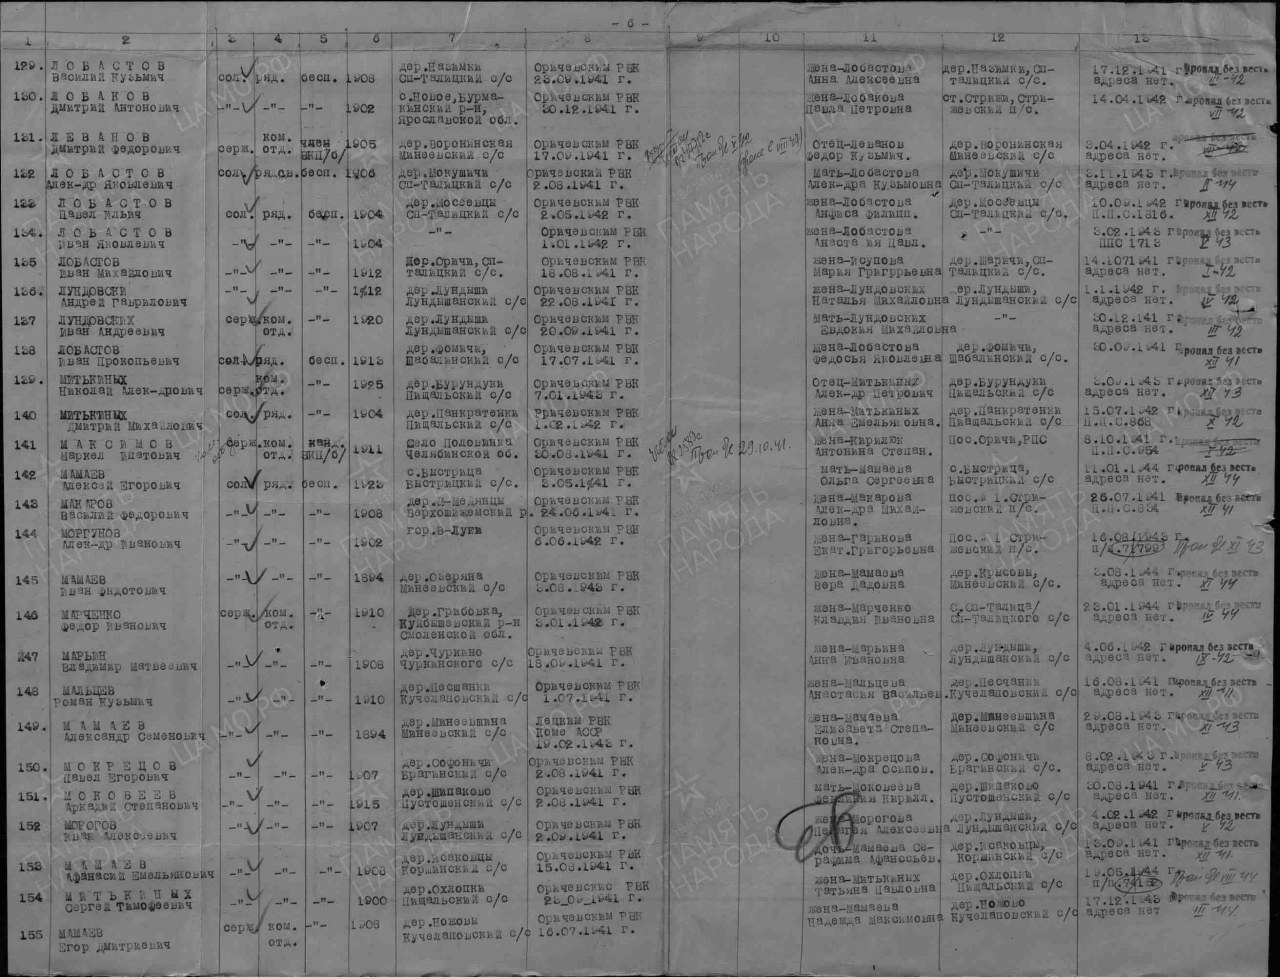 - 6 -
1 2 3 4 5 6 7 8 9 10 11 12 13
129. ЛОБАСТОВ дер.Назимки Оричевским РВК жена-Лобастова дер.Назимки,Сп- 17.12.1941 г. Пропал без вести
Василий Кузьмич сол. ряд. бесп. 1908 Сп-Талицкий с/с 23.09.1941 г. Анна Алексеевна талицкий с/с. адреса нет. III-42
130. ЛОБАКОВ с.Новое,Бурма- Оричевским РВК жена-Лобакова ст.Стрижи,Стри- 14.04.1942 г. Пропал без вести
Дмитрий Антонович -"- -"- -"- 1902 кинский р-н, 30.12.1941 г. Павла Петровна жевский п/с. VII-42
Ярославской обл.
131. ЛЕВАНОВ ком. член дер.Воронинская Оричевским РВК Отец-Леванов дер.Воронинская 3.04.1942 г.
Дмитрий Федорович серж. отд. ВКП/б/ 1905 Минеевский с/с 17.09.1941 г. Федор Кузьмич. Минеевский с/с адреса нет.
132 ЛОБАСТОВ сол. рядов. бесп. 1906 дер.Мокушичи Оричевский РВК Мать-Лобастова дер.Мокушичи 3.11.1943 г. Пропал без вести
Алек-др Яковлевич Сп-Талицкий с/с 2.08.1941 г. Алек-дра Кузьмовна Сп-Талицкий с/с адреса нет. II-44
133 ЛОБАСТОВ дер.Моссевцы Оричевским РВК жена-Лобастова дер.Моссевцы 10.09.1942 г. Пропал без вести
Павел Ильич сол. ряд. бесп. 1904 Сп-Талицкий с/с 2.05.1942 г. Анфиса Филипп. Сп-Талицкий с/с. П.П.С.1816. XII-42
134. ЛОБАСТОВ -"- Оричевским РВК жена-Лобастова -"- 3.02.1943 г. Пропал без вести
Иван Яковлевич -"- -"- -"- 1904 1.01.1942 г. Анастасия Павл. ППС 1713 V 43
135 ЛОБАСТОВ Дер.Оричи,Сп- Оричевским РВК жена-Исупова дер.Шаричи,Сп- 14.1071941 г. Пропал без вести
Иван Михайлович -"- -"- -"- 1912 талицкий с/с. 18.08.1941 г. Мария Григррьевна Талицкий с/с. адреса нет. I-42
136. ЛУНДОВСКИ -"- -"- -"- 1912 дер.Лундыши Оричевским РВК жена-Лундовских дер.Лундыши, 1.1.1942 г. Пропал без вести
Андрей Гаврилович Лундышанский с/с 22.08.1941 г. Наталья Михайловна Лундышанский с/с адреса нет. IV 42
137 ЛУНДОВСКИХ серж. ком. -"- 1920 дер.Лундыши Оричевским РВК Мать-Лундовских -"- 30.12.141 г. Пропал без вести
Иван Андреевич отд. Лундышанский с/с 20.09.1941 г. Евдокия Михайловна адреса нет. III 42
138 ЛОБАСТОВ дер.Фомичи, Оричевским РВК жена-Лобастова дер.Фомичи, 30.09.1941 г. Пропал без вести
Иван Прокопьевич сол. ряд. бесп. 1913 Шабалинский с/с 17.07.1941 г. Федосья Яковлевна Шабалинский с/с. XI 41
139. МИТЬКИНЫХ ком. -"- 1925 дер.Бурундуки Оричевским РВК Отец-Митькиных дер.Бурундуки 3.09.1943 г. Пропал без вести
Николай Алек-дрович серж. отд. Пищальский с/с 7.01.1943 г. Алек-др Петрович Пищальский с/с адреса нет. XII 43
140 МИТЬКИНЫХ сол. ряд. -"- 1904 дер.Панкратенки Рричевским РВК жена-Митькиных дер.Панкратенки 15.07.1942 г. Пропал без вести
Дмитрий Михайлович Пищальский с/с 1.02.1942 г. Анна Емельяновна. Пищальский с/с П.П.С.868 X 42
141 МАКСИМОВ серж. ком. канд. 1911 Село Половинка Оричевским РВК жена-Кирилюк Пос.Оричи,РПС 8.10.1941 г. Пропал без вести
Маркел Ипатович отд. ВКП/б/ Челябинской об. 30.08.1941 г. Антонина Степан. П.П.С.954 I 42
Проп бс 29.10.41.
142 МАМАЕВ с.Быстрица Оричевским РВК Мать-Мамаева с.Быстрица, 11.01.1944 г. Пропал без вести
Алексей Егорович сол. ряд. бесп. 1923 Быстрицкий с/с. 3.05.1941 г. Ольга Сергеевна Быстрицкий с/с адреса нет. XII 44
143 МАКАРОВ Оричевским РВК жена-Макарова пос.№ 1.Стри- 25.07.1941 Пропал без вести
Василий Федорович -"- -"- -"- 1908 Верхошижемский р. 24.06.1941 г. Алек-дра Михай- жевский п/с. П.П.С.834 XII 41
ловна.
144 МОРГУНОВ гор.В-Луки Оричевским РВК жена-Гаринова Пос.№ 1 Стри- 16.08.1943 г.
Алек-др Иванович -"- -"- -"- 1902 6.06.1942 г. Екат.Григорьевна жевский п/с. п/п.71799 Проп бс XI 43
145 МАМАЕВ -"- -"- -"- 1894 дер.Озеряна Оричевским РВК жена-Мамаева дер.Крысовы, 3.08.1944 г. Пропал без вести
Иван Фидотович Минеевский с/с 3.08.1943 г. Вера Дадовна Минеевский с/с. адреса нет. XI 44
146 МАРЧЕНКО серж. ком. -"- 1910 Дер.Грибовка, Оричевским РВК жена-Марченко С.Сп-Талица/ 23.01.1944 г. Пропал без вести
Федор Иванович отд. Куйбышевский р-н 3.01.1942 г. Клавдия Ивановна Сп-Талицкого с/с адреса нет. IV 44
Смоленской обл.
147 МАРЬИН дер.Чуркино Оричевским РВК жена-Марьина дер.Лундыши, 4.06.1942 г. Пропал без вести
Владимир Матвеевич -"- -"- -"- 1908 Чуркинского с/с 18.09.1941 г. Анна Ивановна Лундышанский с/с адреса нет. IX-42
148 МАЛЬЦЕВ дер.Песшанки Оричевским РВК жена-Мальцева дер.Песчанки 16.08.1941 г. Пропал без вести
Роман Кузьмич -"- -"- -"- 1910 Кучелаповский с/с 1.07.1941 г. Анастасия Васильев. Кучелаповский с/с адреса нет. XII 41
149. МАМАЕВ дер.Минеевшина Лецким РВК жена-Мамаева дер.Минеевшина 29.08.1943 г. Пропал без вести
Александр Семенович -"- -"- -"- 1894 Минеевский с/с Коме АССР Елизавета Степа- Минеевский с/с адреса нет. XI-43
19.02.1943 г. новна.
150. МОКРЕЦОВ дер.Софоничи Оричевским РВК жена-Мокрецова дер.Софоничи 8.02.1943 г. Пропал без вести
Павел Егорович -"- -"- -"- 1907 Брагинский с/с 2.08.1941 г. Алек-дра Осипов. Брагинский с/с. адреса нет. V 43
151. МОКОВЕЕВ дер.Шипаково Оричевским РВК мать-Моковеева дер.Шипаково 30.08.1941 г. Пропал без вести
Аркадий Степанович -"- -"- -"- 1915 Пустошенский с/с 2.08.1941 г. Кирилл. Пустошенский с/с адреса нет. XII 41.
152 МОРОГОВ -"- -"- -"- 1907 дер.Лундыши Оричевским РВК жена-Морогова дер.Лундыши, 4.02.1942 г. Пропал без вести
Иван Алексеевич Лундышанский с/с 2.09.1941 г. Пелагея Алексеевна Лундышанский с/с адреса нет. V 42
153 МАМАЕВ дер.Исаковцы Оричевским РВК дочь-Мамаева Се- дер.Исаковцы, 13.09.1941 г. Пропал без вести
Афанасий Емельянович -"- -"- -"- 1908 Коршинский с/с 15.08.1941 г. рафима Афаносьев. Коршинский с/с адреса нет. XII 41.
154 МИТЬКИНЫХ дер.Охлопки Оричевскис РВК жена-Митькиных дер.Охлопки 19.05.1944 г.
Сергей Тимофеевич -"- -"- -"- 1900 Пищальский с/с 23.09.1941 г. Татьяна Павловна Пищальский с/с п/п
155 МАМАЕВ серж. ком. -"- 1908 дер.Ножовы Оричевским РВК жена-Мамаева дер.Ножово 17.12.1943 Пропал без вести
Егор Дмитриевич отд. Кучелаповский с/с 16.07.1941 г. Надежда Максимовна Кучелаповский с/с адреса нет III-44
ПАМЯТЬ НАРОДА
ЦА МО РФ